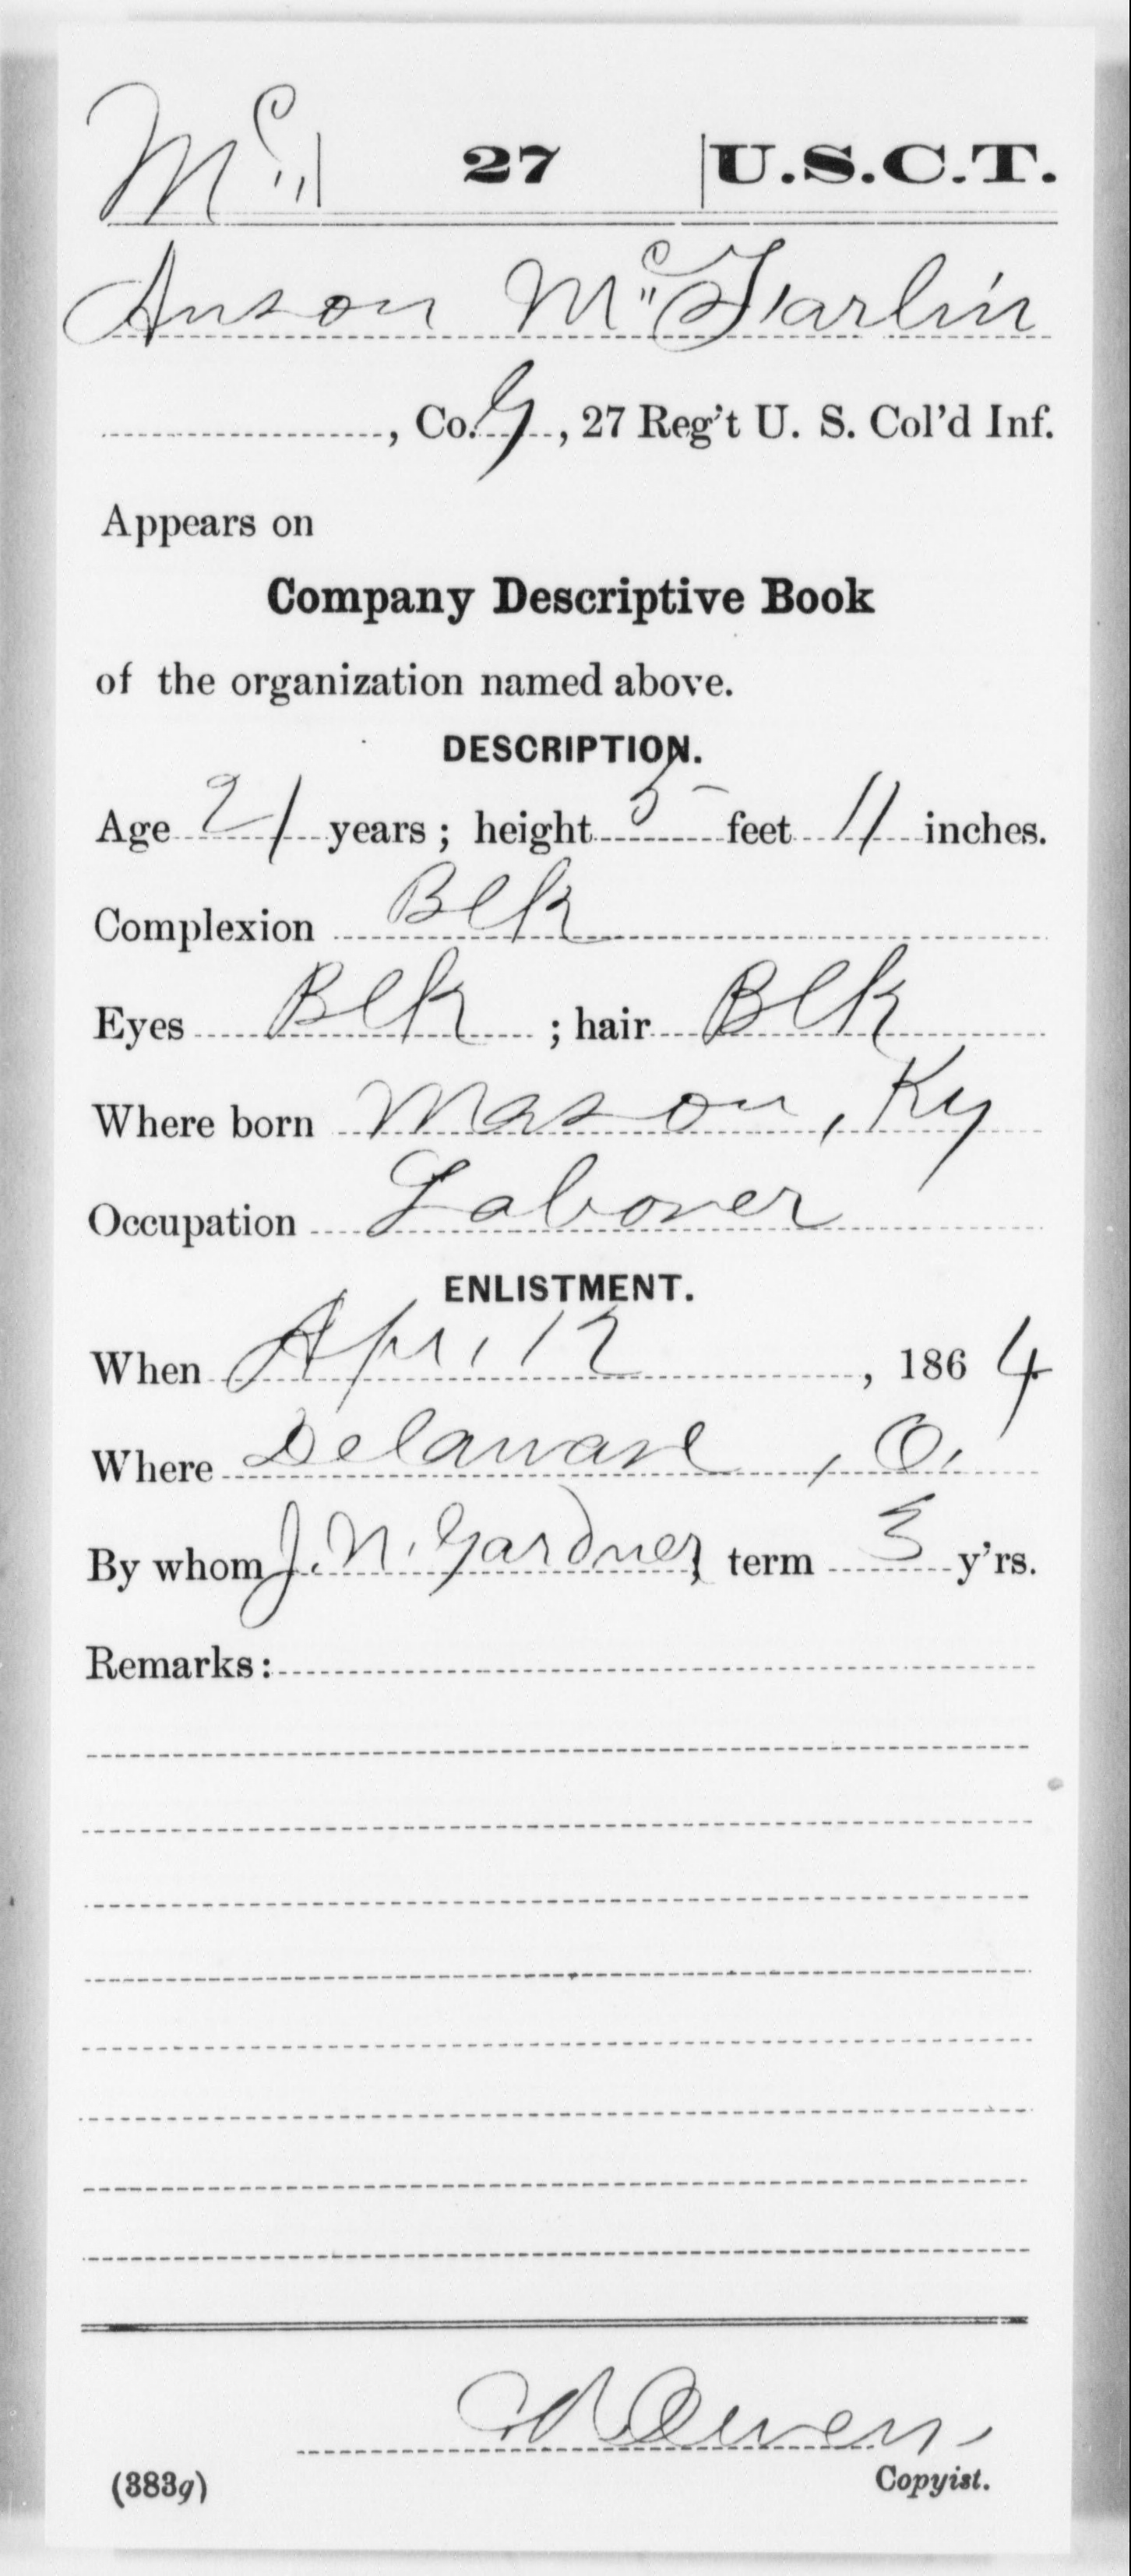 Mc 27 U.S.C.T.
Anson McFarlin
, Co. G, 27 Reg't U. S. Col'd Inf.
Appears on
Company Descriptive Book
of the organization named above.
DESCRIPTION.
Age 21 years; height 5 feet 11 inches.
Complexion Blk
Eyes Blk ; hair Blk
Where born Mason, Ky
Occupation Laborer
ENLISTMENT.
When Apr. 12, 1864
Where Delaware, O.
By whom J. N. Gardner, term 3 y'rs.
Remarks:
Owen
Copyist.
(383g)